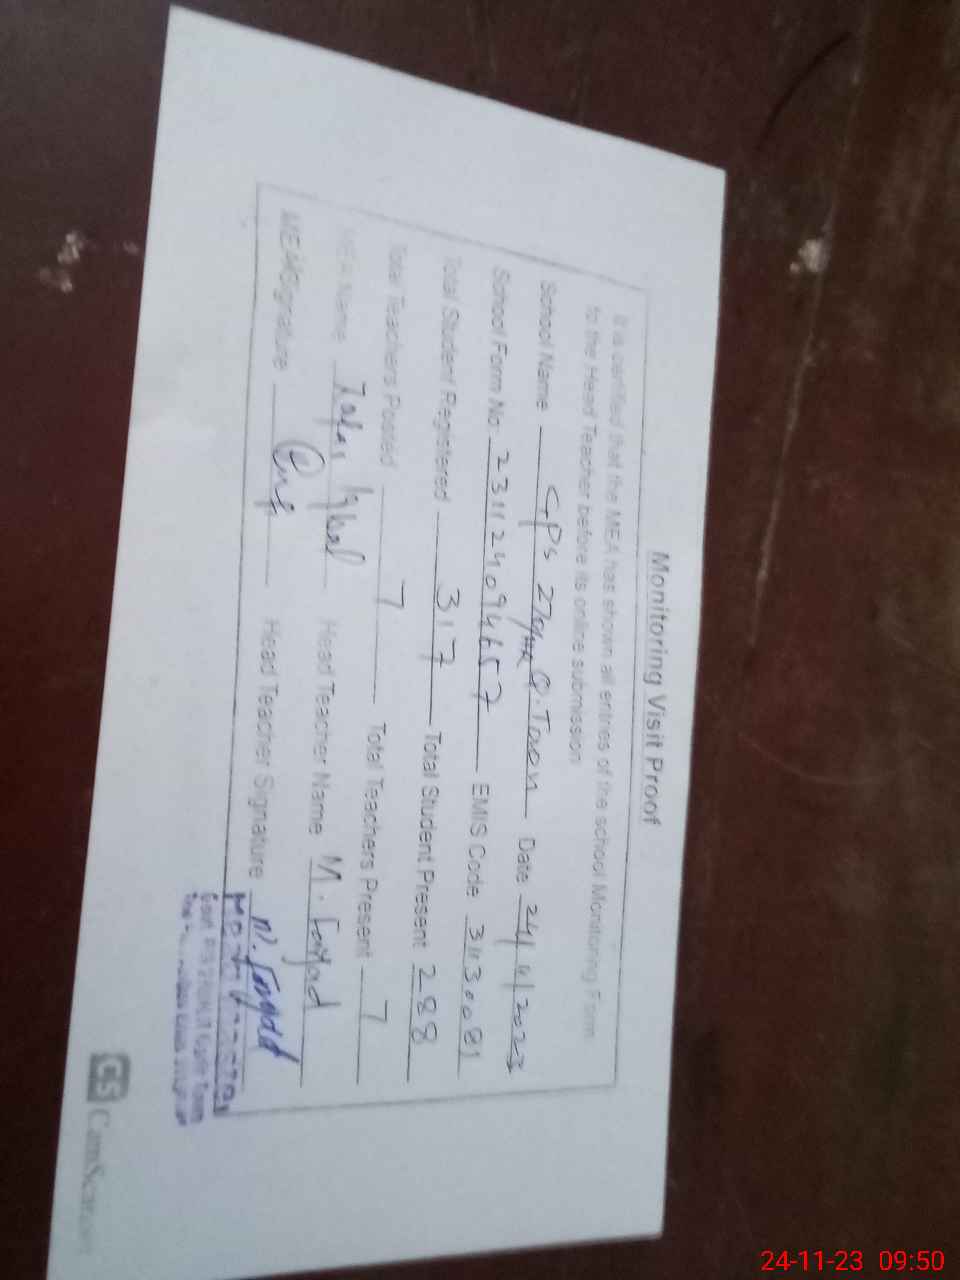 Monitoring Visit Proof
It is certified that the MEA has shown all entries of the school Monitoring Form
to the Head Teacher before its online submission
School Name GPS Q. Town Date 24/11/2023
School Form No: 231124094657 EMIS Code
Total Student Registered 317 Total Student Present 288
Total Teachers Posted 7 Total Teachers Present 7
MEA Name Zafar Iqbal Head Teacher Name M.
MEA Signature Head Teacher Signature
CS CamScanner
24-11-23 09:50